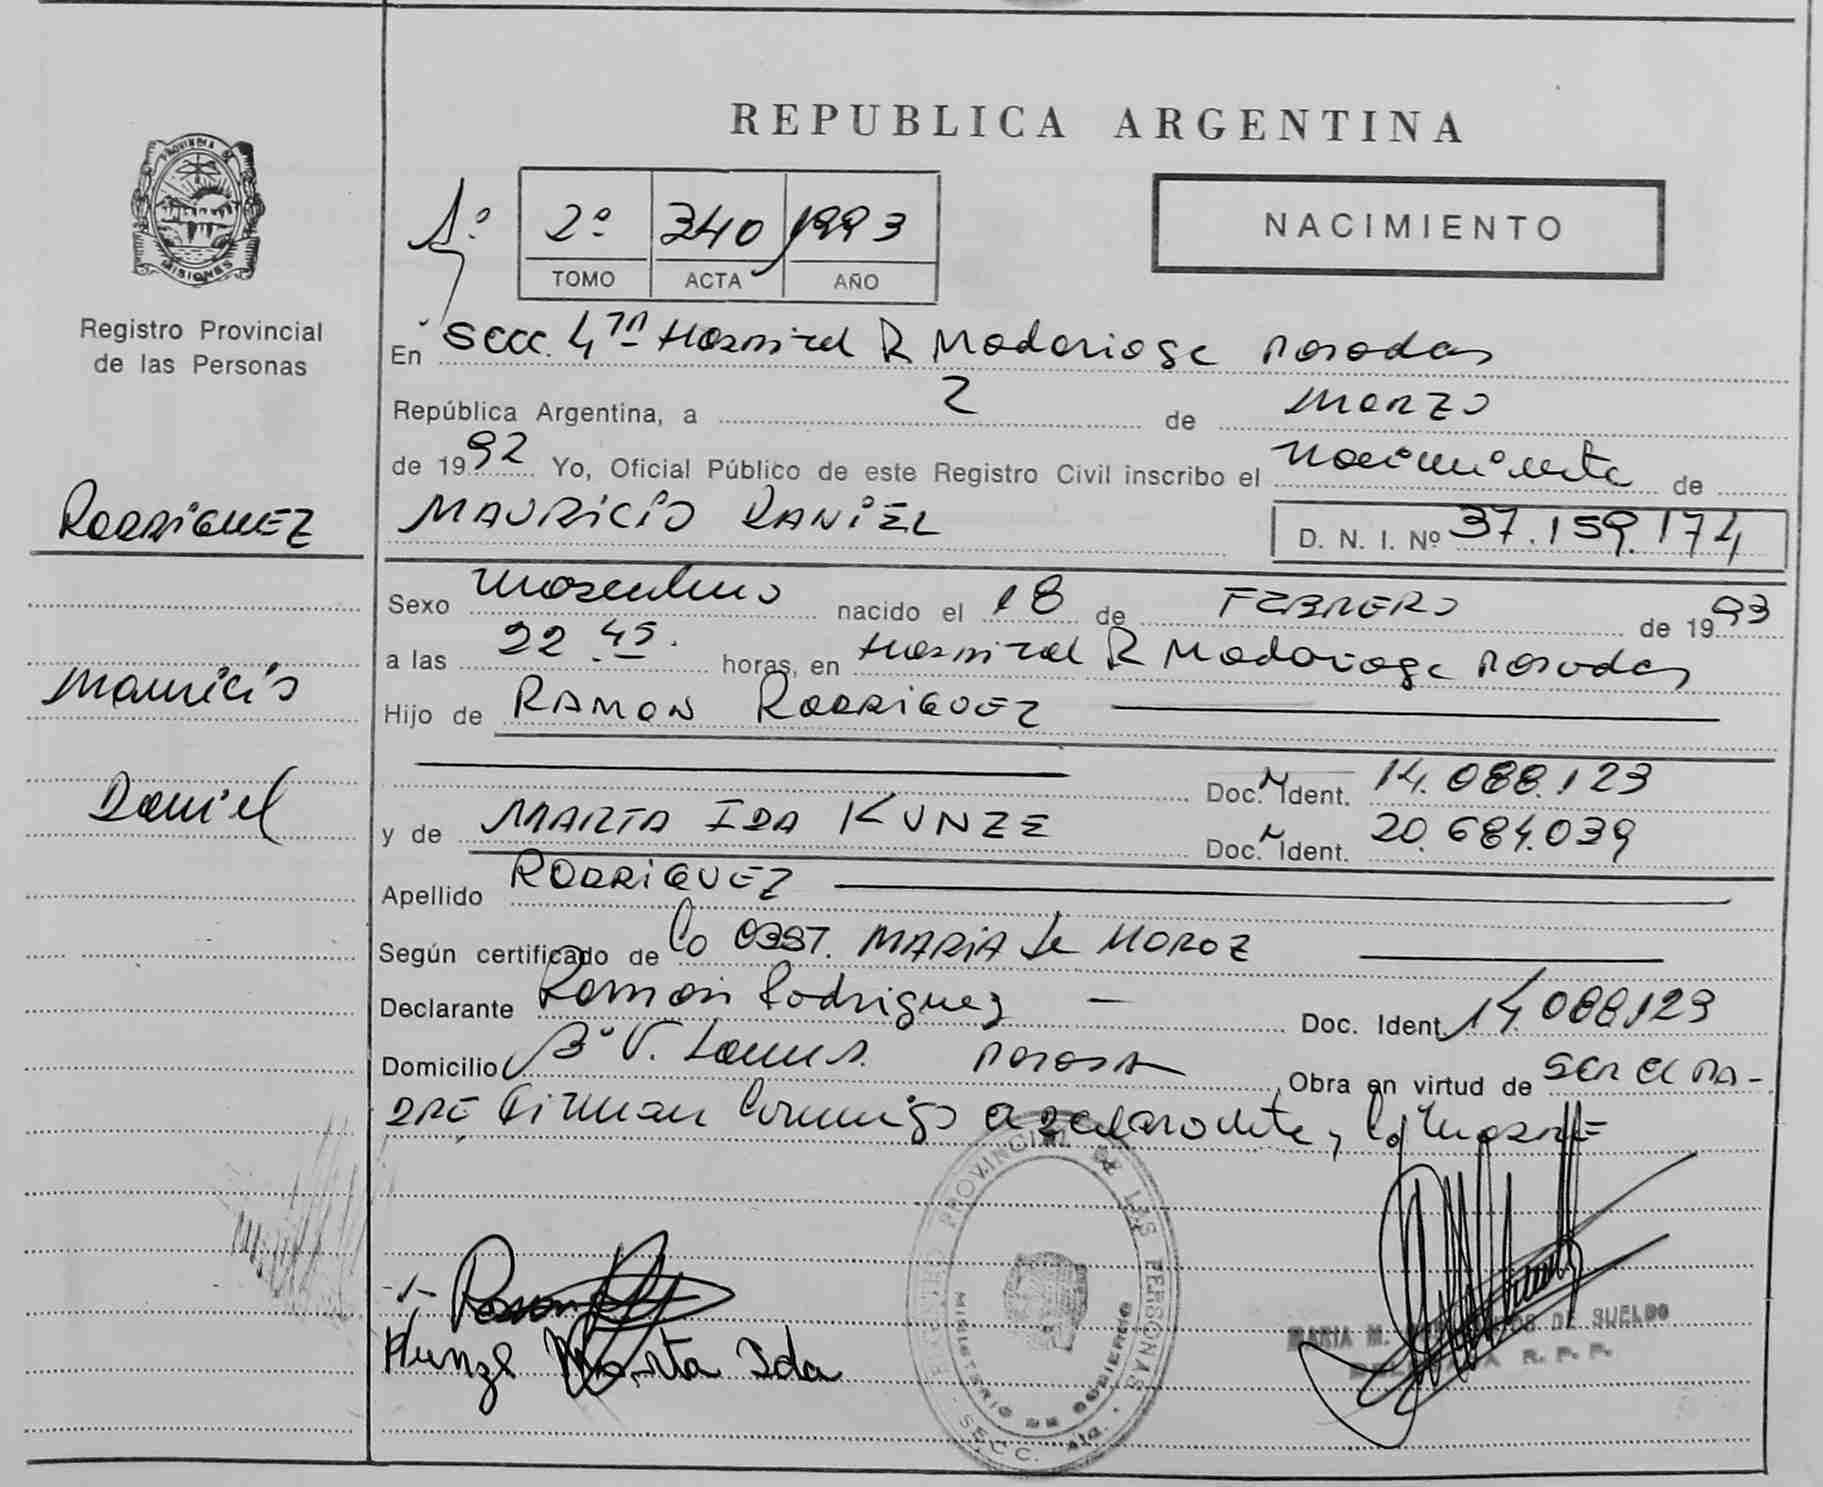 REPUBLICA ARGENTINA
PROVINCIA DE MISIONES
Registro Provincial
de las Personas
1º 2º 340 1993
TOMO ACTA AÑO
NACIMIENTO
En Secc. 4ta Hospital R Madariaga Posadas
República Argentina, a 2 de Marzo
de 1992 Yo, Oficial Público de este Registro Civil inscribo el Nacimiento de
RODRIGUEZ
MAURICIO DANIEL D. N. I. Nº 37.159.174
Sexo Masculino nacido el 18 de FEBRERO de 1993
a las 22 45. horas, en Hospital R Madariaga Posadas
Mauricio
Hijo de RAMON RODRIGUEZ
Doc. N Ident. 14.088.123
Daniel
y de MARTA IDA KUNZE Doc. N Ident. 20.684.039
Apellido RODRIGUEZ
Según certificado de la OBST. MARIA de MOROZ
Declarante Ramon Rodriguez Doc. Ident. 14.088.123
Domicilio Bº V. Lanus. Obra en virtud de ser el pa-
dre Firman conmigo el declarante, la madre
REGISTRO PROVINCIAL DE LAS PERSONAS
MINISTERIO DE GOBIERNO
SECC. 4ta.
Kunze Marta Ida
MARIA M. DE SUELDO
R. P. P.